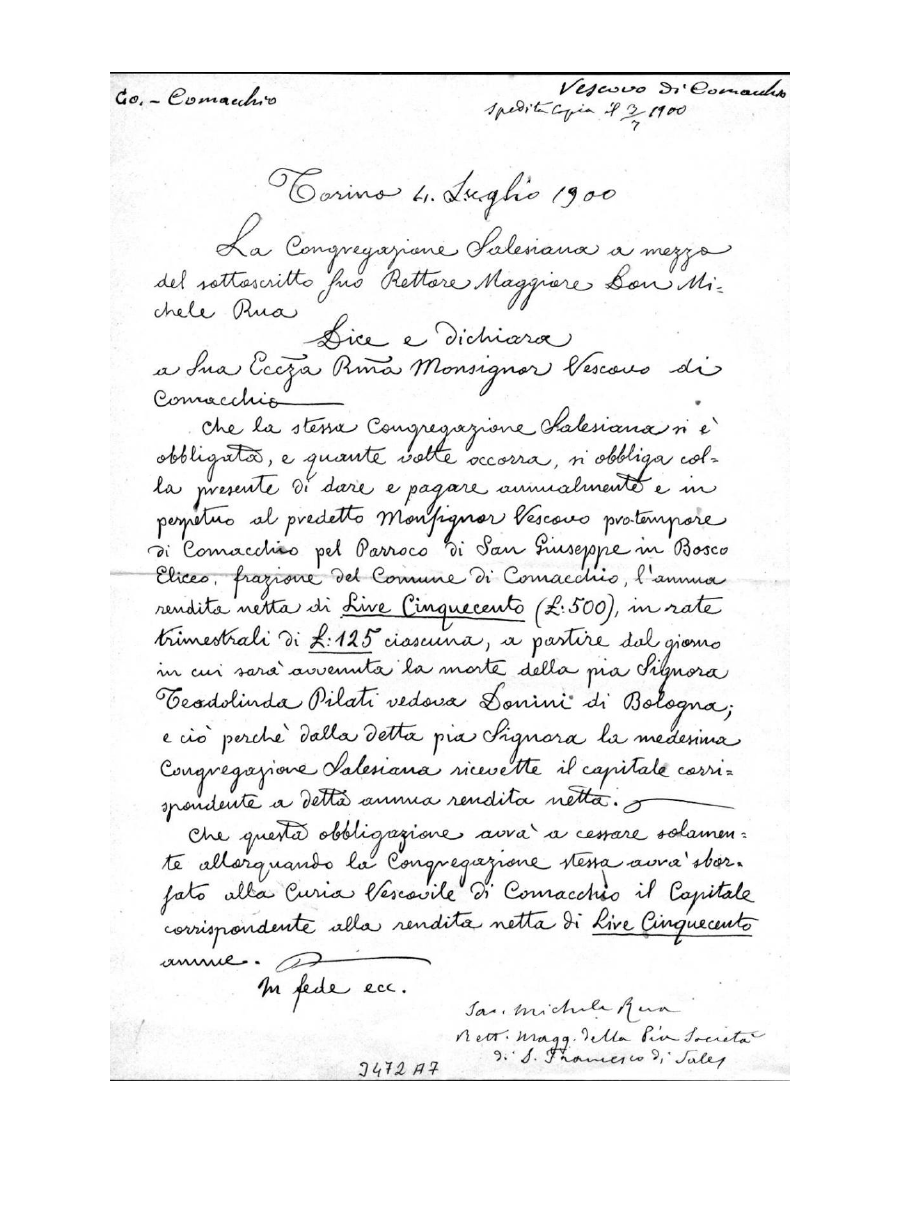 Co. - Comacchio
Vescovo di Comacchio
spedita copia il 3/7 1900
Torino 4. Luglio 1900
La Congregazione Salesiana a mezzo
del sottoscritto suo Rettore Maggiore Don Mi=
chele Rua
Dice e dichiara
a Sua Eccza Rma Monsignor Vescovo di
Comacchio
che la stessa Congregazione Salesiana si è
obbligata, e quante volte occorra, si obbliga col=
la presente di dare e pagare annualmente e in
perpetuo al predetto Monsignor Vescovo pro-tempore
di Comacchio pel Parroco di San Giuseppe in Bosco
Eliceo, frazione del Comune di Comacchio, l'annua
rendita netta di Lire Cinquecento (£:500), in rate
trimestrali di £:125 ciascuna, a partire dal giorno
in cui sarà avvenuta la morte della pia Signora
Teodolinda Pilati vedova Donini di Bologna;
e ciò perchè dalla detta pia Signora la medesima
Congregazione Salesiana ricevette il capitale corri=
spondente a detta annua rendita netta.
Che questa obbligazione avrà a cessare solamen=
te allorquando la Congregazione stessa avrà sbor=
sato alla Curia Vescovile di Comacchio il Capitale
corrispondente alla rendita netta di Lire Cinquecento
annue.
In fede ecc.
Sac. Michele Rua
Rett. Magg. della Pia Società
di S. Francesco di Sales
3472 A7